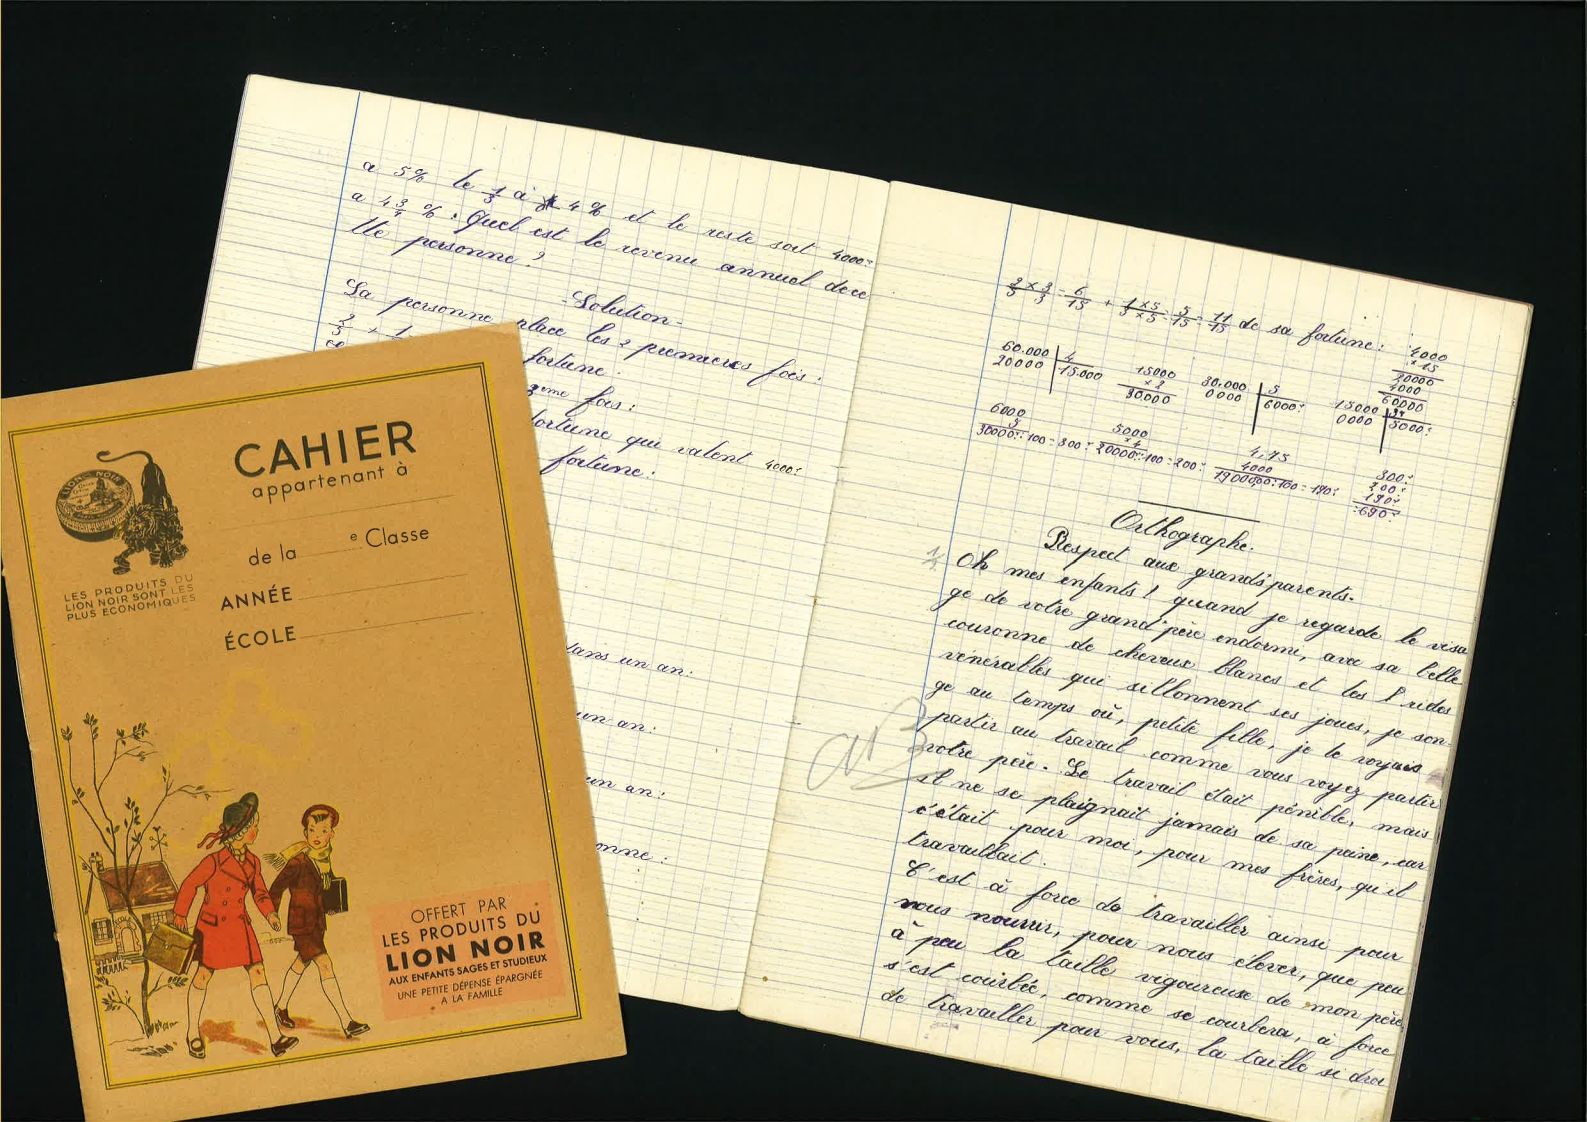 a 5% le 1/3 à 4% et le reste soit 4000:
a 4 3/4 %: Quel est le revenu annuel de ce
tte personne?
Solution
La personne place les 2 premières fois:
2/5 + 1/
fortune:
3ème fois:
fortune qui valent 4000:
fortune:
dans un an:
un an:
un an:
onne:
2 × 3 / 5 × 3 = 6/15 + 1 × 5 / 3 × 5 = 5/15 = 11/15 de sa fortune:
4000
× 15
20000
4000
60000
60.000 | 4
20000 | 15.000
15000
× 2
30000
30.000 | 5
0000 | 6000:
15000
0000 | 5000:
6000
5
30000: 100 = 300:
5000
× 4
20000: 100 = 200:
4,75
4000
1900000: 100 = 190:
300:
200:
190:
690:
Orthographe.
Respect aux grands'parents.
Oh mes enfants! quand je regarde le visa
ge de votre grand'père endormi, avec sa belle
couronne de cheveux blancs et les rides
vénérables qui sillonnent ses joues, je son-
ge au temps où, petite fille, je le voyais
partir au travail comme vous voyez partir
votre père. Le travail était pénible, mais
il ne se plaignait jamais de sa peine, car
c'était pour moi, pour mes frères, qu'il
travaillait.
C'est à force de travailler ainsi pour
nous nourrir, pour nous élever, que peu
à peu la taille vigoureuse de mon père
s'est courbée, comme se courbera, à force
de travailler pour vous, la taille si droi
AB
CAHIER
appartenant à
de la e Classe
ANNÉE
ÉCOLE
LION NOIR
LES PRODUITS DU
LION NOIR SONT LES
PLUS ECONOMIQUES
OFFERT PAR
LES PRODUITS DU
LION NOIR
AUX ENFANTS SAGES ET STUDIEUX
UNE PETITE DÉPENSE ÉPARGNÉE
A LA FAMILLE